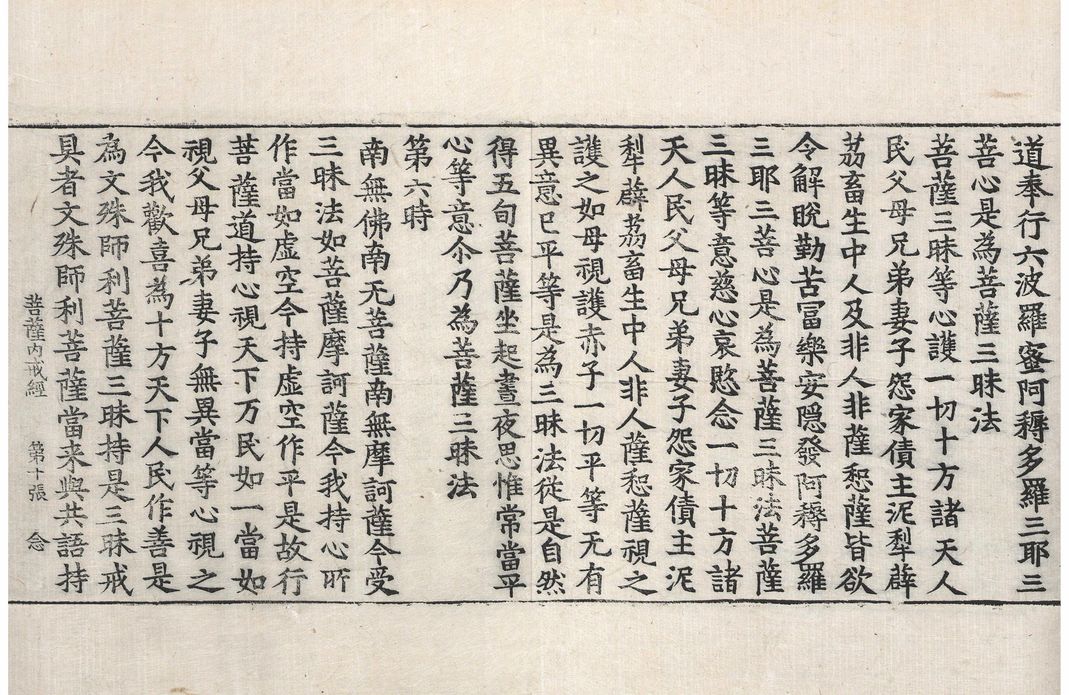 道奉行六波羅蜜阿耨多羅三耶三
菩心是為菩薩三昧法
菩薩三昧等心護一切十方諸天人
民父母兄弟妻子怨家債主泥犁薜
荔畜生中人及非人非薩恕薩皆欲
令解脫勤苦冨樂安隱發阿耨多羅
三耶三菩心是為菩薩三昧法菩薩
三昧等意慈心哀愍念一切十方諸
天人民父母兄弟妻子怨家債主泥
犁薜荔畜生中人非人薩恕薩視之
護之如母視護赤子一切平等无有
異意已平等是為三昧法從是自然
得五旬菩薩坐起晝夜思惟常當平
心等意尒乃為菩薩三昧法
第六時
南無佛南无菩薩南無摩訶薩今受
三昧法如菩薩摩訶薩今我持心所
作當如虛空今持虛空作平是故行
菩薩道持心視天下万民如一當如
視父母兄弟妻子無異當等心視之
今我歡喜為十方天下人民作善是
為文殊師利菩薩三昧持是三昧戒
具者文殊師利菩薩當来與共語持
菩薩內戒經 第十張 念